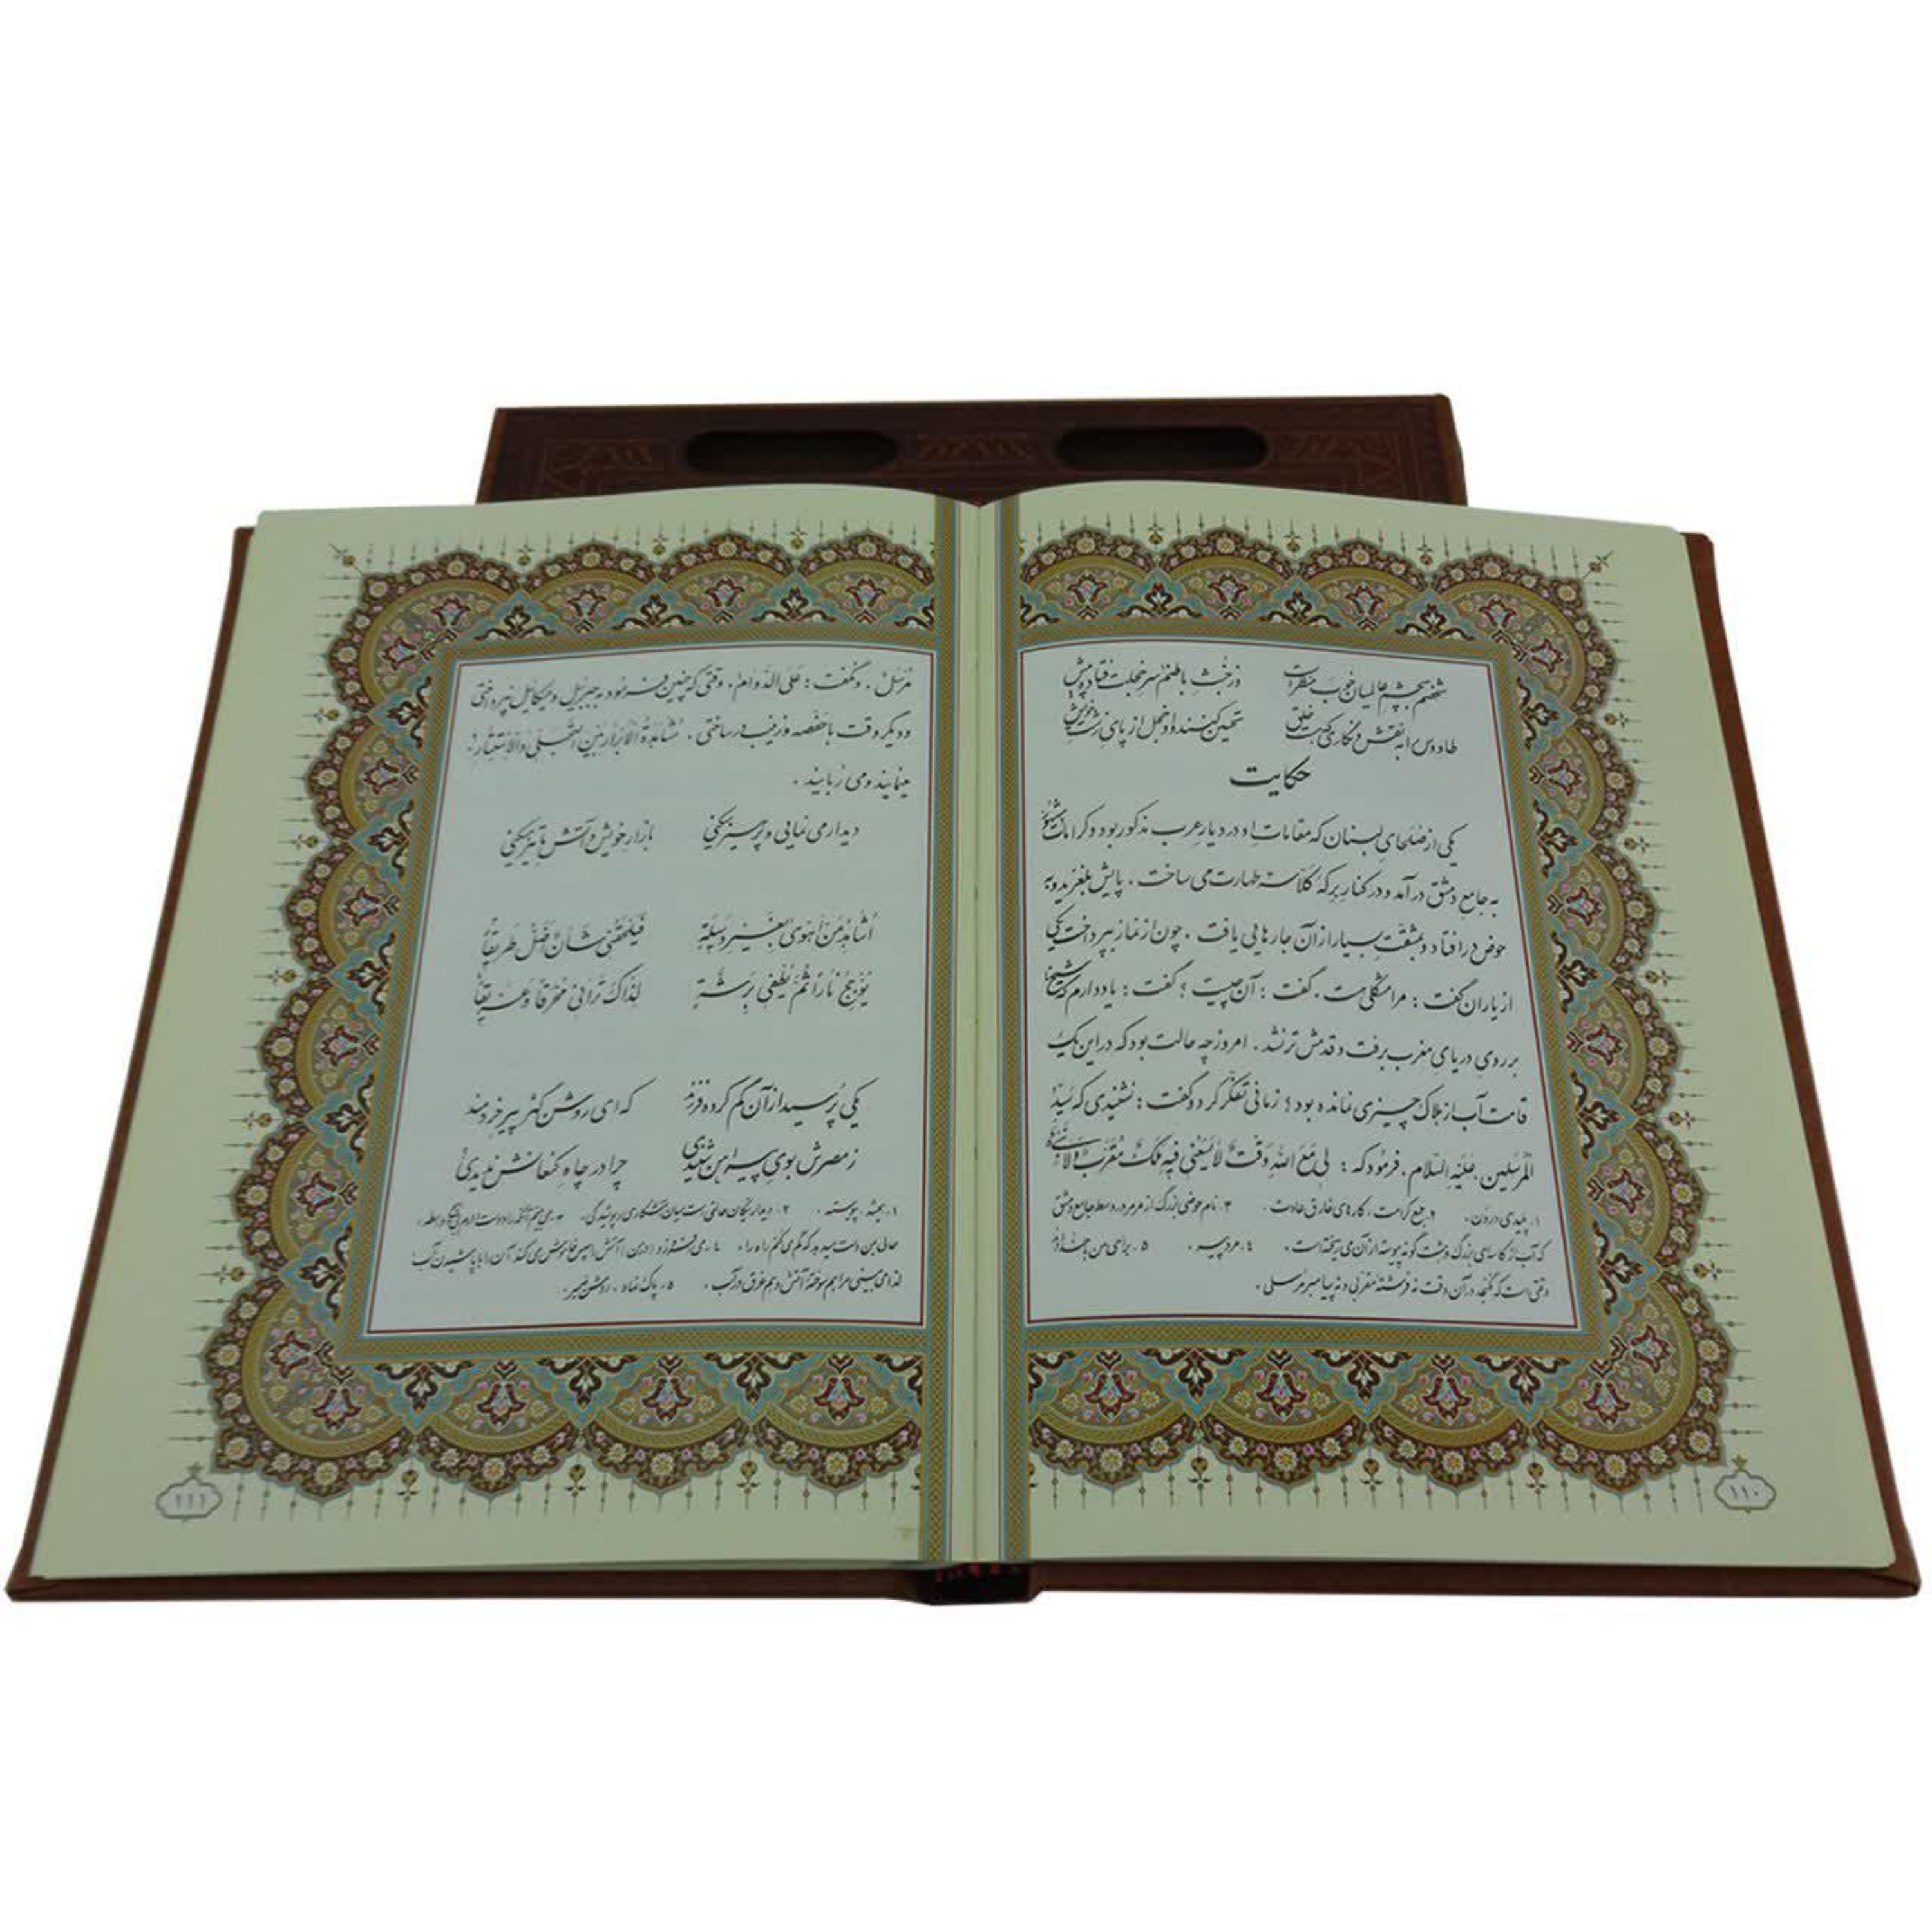 شخصم به چشم عالمیان خوب منظر است
وز خبث باطنم سر خجلت فتاده پیش
طاووس را به نقش و نگاری که هست خلق
تحسین کنند و او خجل از پای زشت خویش
حکایت
یکی از صُلَحای لبنان که مقامات او در دیار عرب مذکور بود و کرامات مشهور
به جامع دمشق در آمد و در کنار برکهٔ کلّاسه طهارت می ساخت . پایش بلغزید و به
حوض در افتاد و به مشقّت بسیار از آن جا رهایی یافت . چون از نماز بپرداخت یکی
از یاران گفت : مرا مشکلی هست . گفت : آن چیست ؟ گفت : یاد دارم که شیخ
بر روی دریای مغرب برفت و قدمش تر نشد . امروز چه حالت بود که در این یک
قامت آب از هلاک چیزی نمانده بود ؟ زمانی تفکّر کرد و گفت : نشنیدی که سَیّدُ
المُرسَلین ، عَلَیْهِ السَّلام ، فرمود که : لی مَعَ اللهِ وَقْتٌ لا یَسَعُنی فیهِ مَلَکٌ مُقَرَّبٌ وَلا نَبیٌّ
۱. پلیدی درون . ۲. جمع کرامت ، کارهای خارق عادت . ۳. نام حوضی بزرگ از مرمر در وسط جامع دمشق
که آب از کاسه‌ای بزرگ پیوسته از آن می ریخته است . ٤. مرد پیر . ۵. برای من با خدا
وقتی است که نگنجد در آن وقت نه فرشتهٔ مقرّبی و نه پیامبر مرسلی .
۱۱۰
مُرْسَلٌ . و نگفت : عَلَی الدَّوامْ . وقتی که چنین فرمود به جبریل و میکائیل نپرداختی
و دیگر وقت با حَفْصه و زینب در ساختی . مُشاهَدَةُ الاَبْرارِ بَیْنَ التَّجَلّی وَالاِسْتِتار ،
می‌نمایند و می رُبایند .
دیدار می نمایی و پرهیز می‌کنی
بازار خویش و آتش ما تیز می‌کنی
اُشاهِدُ مَنْ اَهْوی بِغَیْرِ وَسیلَةٍ
فَیَلْحَقُنی شَأنٌ اَضِلُّ طَریقاً
یُؤَجِّجُ ناراً ثُمَّ یُطْفی بِرَشَّةٍ
لِذاکَ تَرانی مُحْرَقاً وَ غَریقاً
یکی پُرسید از آن گم کرده فرزند
که ای روشن گُهَر پیر خردمند
ز مصرش بوی پیراهن شنیدی
چرا در چاه کنعانش ندیدی
۱. همیشه ، پیوسته . ۲. دیدار نیکان حالتی است میان آشکاری و پوشیدگی . ۳. می‌بینم آنکه را دوست دارم بی هیچ واسطه ،
حالی به من دست می‌دهد که گم می کنم راه را . ٤. می افروزد (در من) آتش را سپس خاموش می کند آن را با پاشیدن آب
لذا می بینی مرا هم سوختهٔ آتش و هم غرق در آب . ۵. پاک نهاد ، روشن ضمیر .
۱۱۱